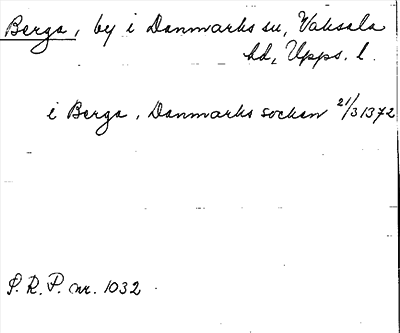 Berga, by i Danmarks sn, Vaksala
hd, Upps. l.
i Berga, Danmarks socken 21/3 1372
S. R. P. nr. 1032.